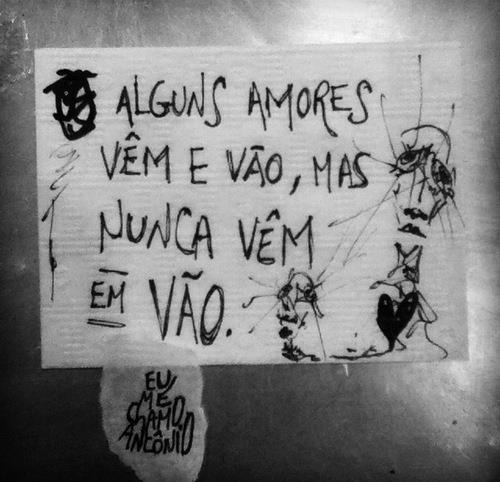 ALGUNS AMORES
VÊM E VÃO, MAS
NUNCA VÊM
EM VÃO.
EU
ME
CHAMO
ANTÔNIO